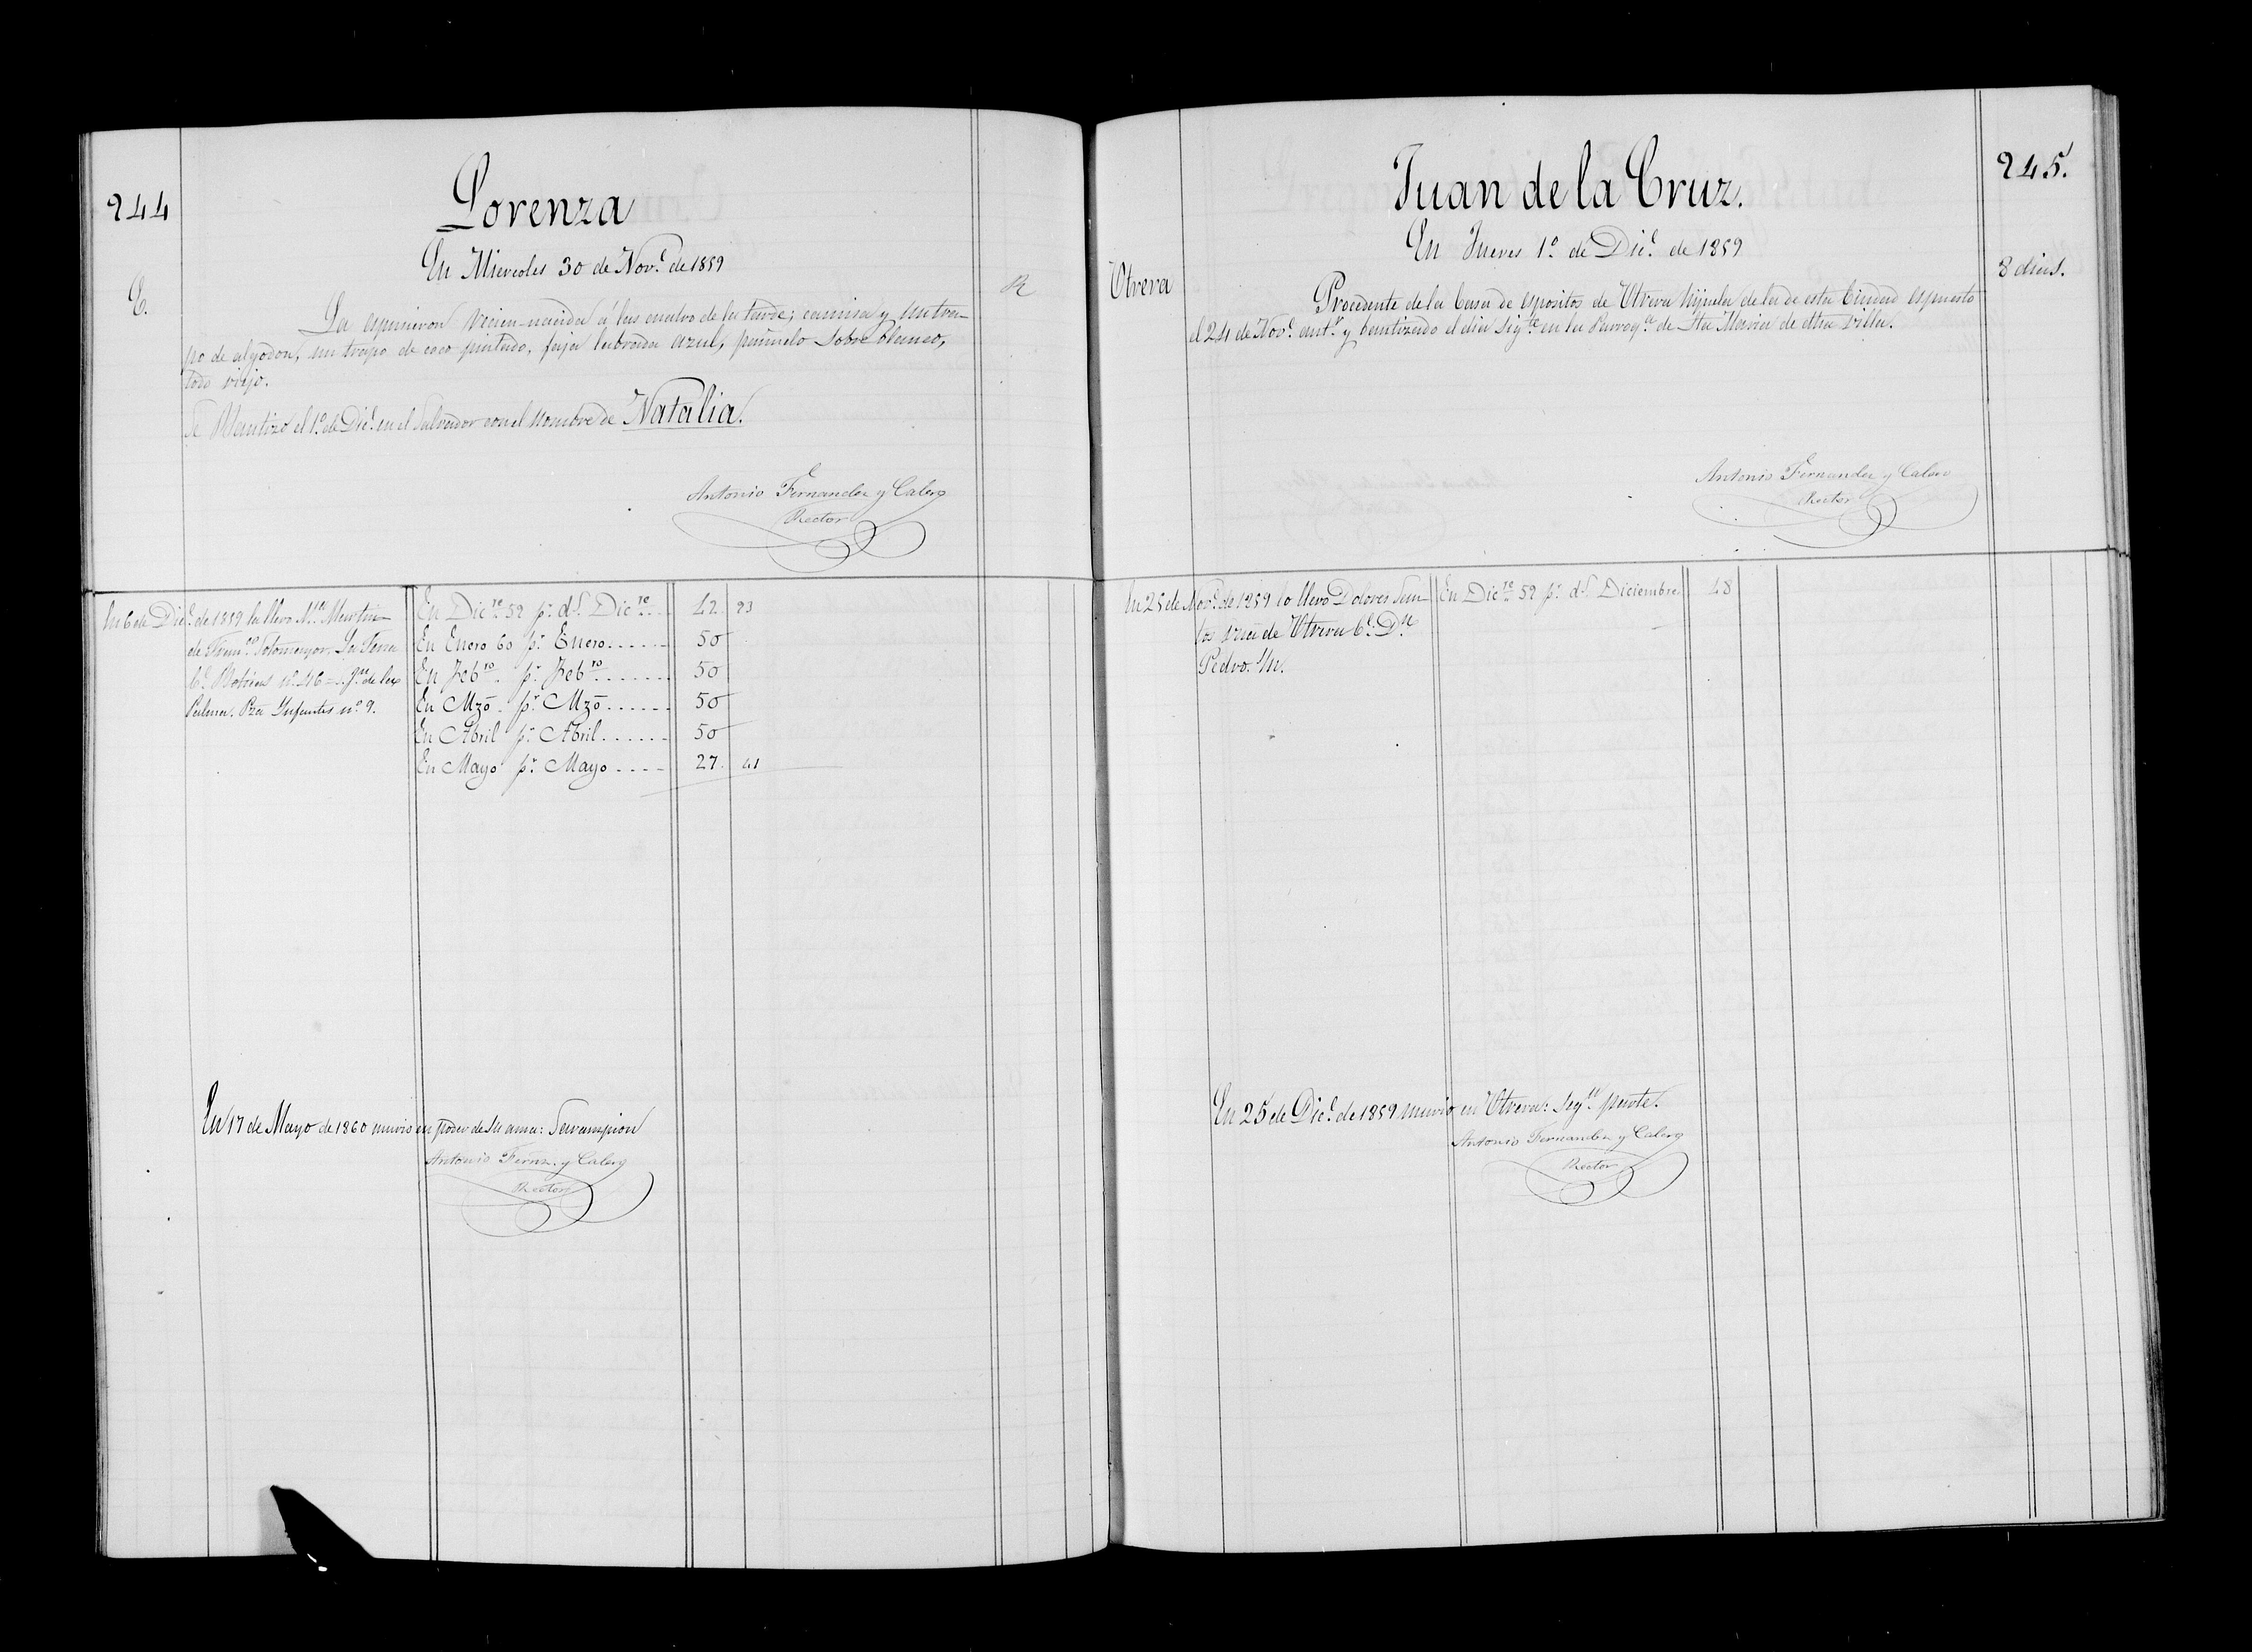 244
Lorenza
En Miercoles 30 de Nov.e de 1859
E.
R
La espusieron recien-nacida á las cuatro de la tarde; camisa y un tra-
po de algodon, un trapo de coco pintado, faja labrada azul, pañuelo sobre blanco,
todo viejo.
Se Bautizó el 1.o de Dic.e en el Salvador con el nombre de Natalia.
Antonio Fernandez y Calero
Rector
En 6 de Dic.e de 1859 la llevo M.a
de Fran.co Sotomayor. Su
C.e n.o 46 =
Palma. Pza Infantes n.o 9.
En Dic.re 59 p.r d.l Dic.re 42. 23
En Enero 60 p.r Enero...... 50
En Feb.ro p.r Feb.ro...... 50
En Mzo. p.r Mzo...... 50
En Abril p.r Abril...... 50
En Mayo p.r Mayo.... 27. 41
En 17 de Mayo de 1860 murió en poder de su ama: Sarampion
Antonio Fernz. y Calero
Rector
245.
Juan de la Cruz.
En Jueves 1.o de Dic.e de 1859
Utrera
8 dias.
Procedente de la Casa de espositos de Utrera hijuela de la de esta Ciudad espuesto
el 24 de Nov.e ant.r y bautizado el dia sig.te en la Parroq.a de Sta Maria de dha villa.
Antonio Fernandez y Calero
Rector
En 25 de Nov.e de 1859 lo llevo Dolores San-
tos de Utrera C.e D.n
Pedro.
En Dic.re 59 p.r d.l Diciembre 48
En 25 de Dic.e de 1859 murió en Utrera: seg.n parte.
Antonio Fernandez y Calero
Rector